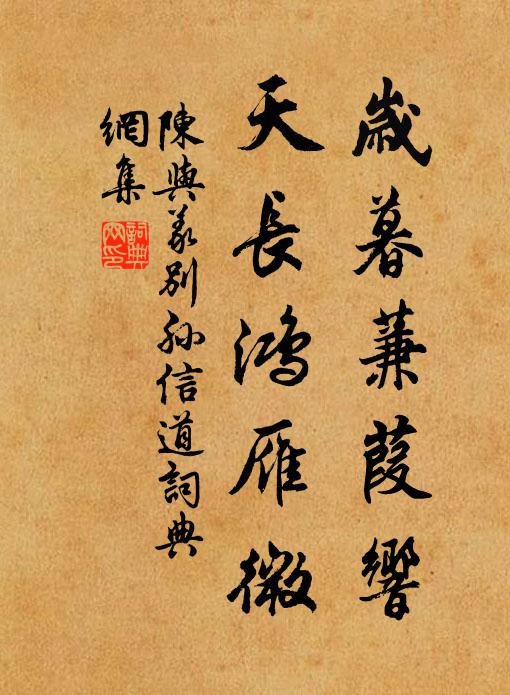 歲暮蒹葭響
天長鴻雁微
陳與義別孙信道詞典
網集
詞典網印